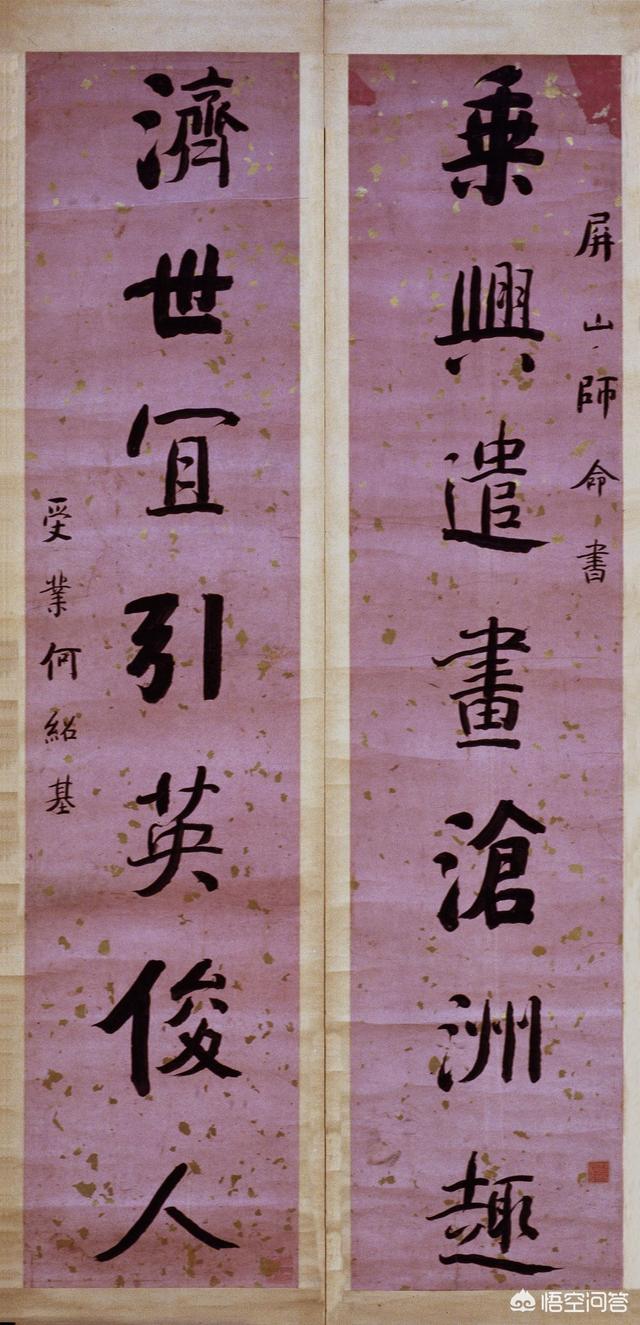 屏山師命書
乘興遣畫滄洲趣
濟世宜引英俊人
受業何紹基
悟空问答